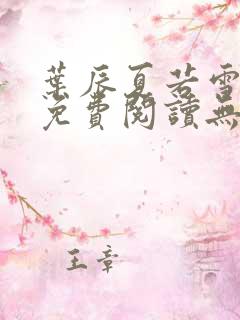 葉辰夏若雪
免費閱讀無
王章